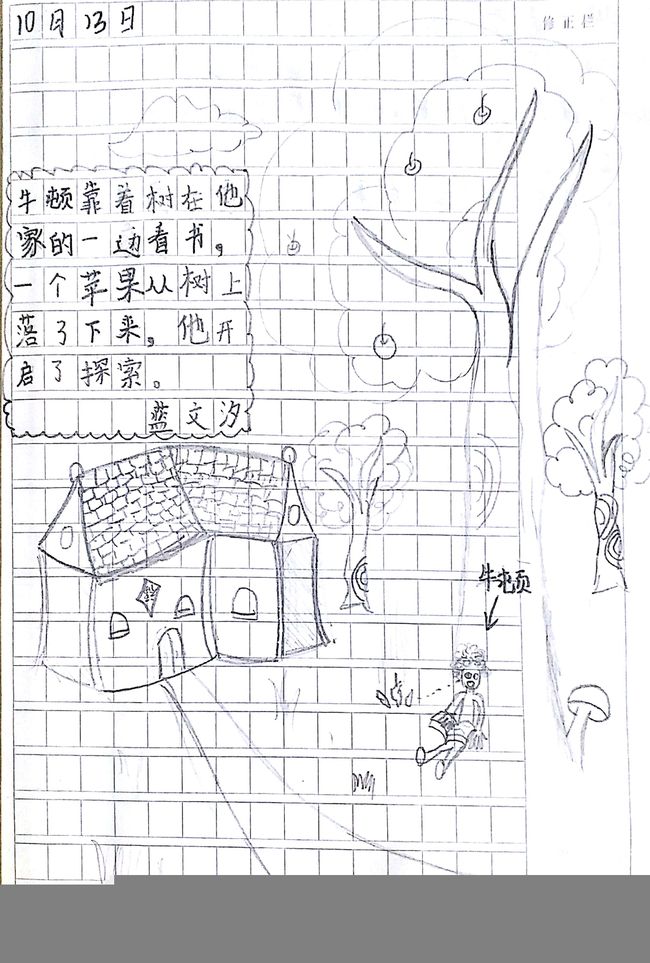 10月13日
修正栏
牛顿靠着树在他
家的一边看书。
一个苹果从树上
落了下来，他开
启了探索。
蓝文汐
牛顿